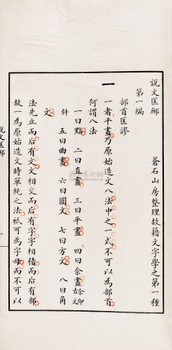 說文匡鄦
蒼石山房整理故籍文字學之第一種
第一編
部首匡謬
一
一者平畫乃原始造文八法中之一式不可以為部首
何謂八法
一曰點 二曰直畫 三曰平畫 四曰衺畫
斜 五曰曲畫 六曰圓文 七曰方文 八曰角
文
法先立而后有文文相交而后有字字相積而后有部
故一為原始造文時單純之法祇可為字母而不可以
說文匡鄦